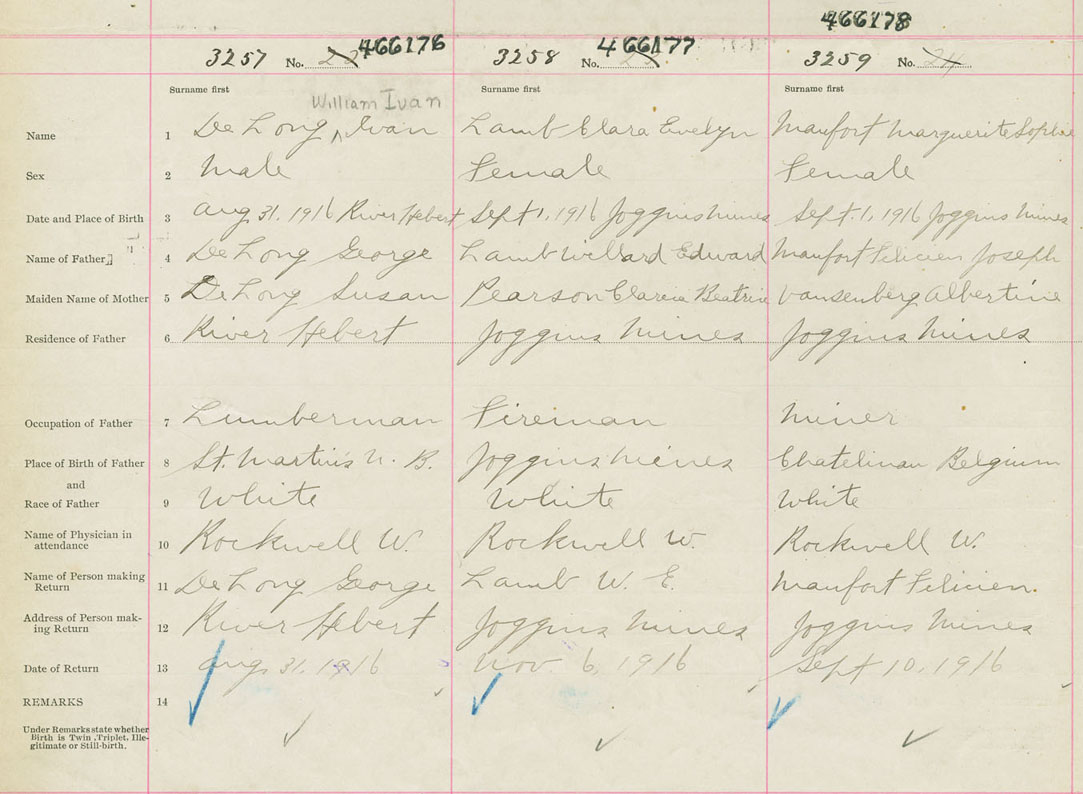 466178
3257 No. 22 466176 3258 No. 466177 3259 No. 24
Surname first Surname first Surname first
William Ivan
Name 1 DeLong, Ivan Lamb Clara Evelyn Maufort Marguerite Sophie
Sex 2 Male Female Female
Date and Place of Birth 3 Aug 31, 1916 River Hebert Sept 1, 1916 Joggins Mines Sept. 1, 1916 Joggins Mines
Name of Father 4 DeLong George Lamb Willard Edward Maufort Felicien Joseph
Maiden Name of Mother 5 DeLong Susan Pearson Beatrice Vansenberg Albertine
Residence of Father 6 River Hebert Joggins Mines Joggins Mines
Occupation of Father 7 Lumberman Fireman Miner
Place of Birth of Father 8 St. Martins N. B. Joggins Mines Chatelinau Belgium
and
Race of Father 9 White White White
Name of Physician in
attendance 10 Rockwell W. Rockwell W. Rockwell W.
Name of Person making
Return 11 DeLong George Lamb W. E. Maufort Felicien.
Address of Person mak-
ing Return 12 River Hebert Joggins Mines Joggins Mines
Date of Return 13 Aug 31, 1916 Nov 6, 1916 Sept 10, 1916
REMARKS 14
Under Remarks state whether
Birth is Twin, Triplet, Ille-
gitimate or Still-birth.